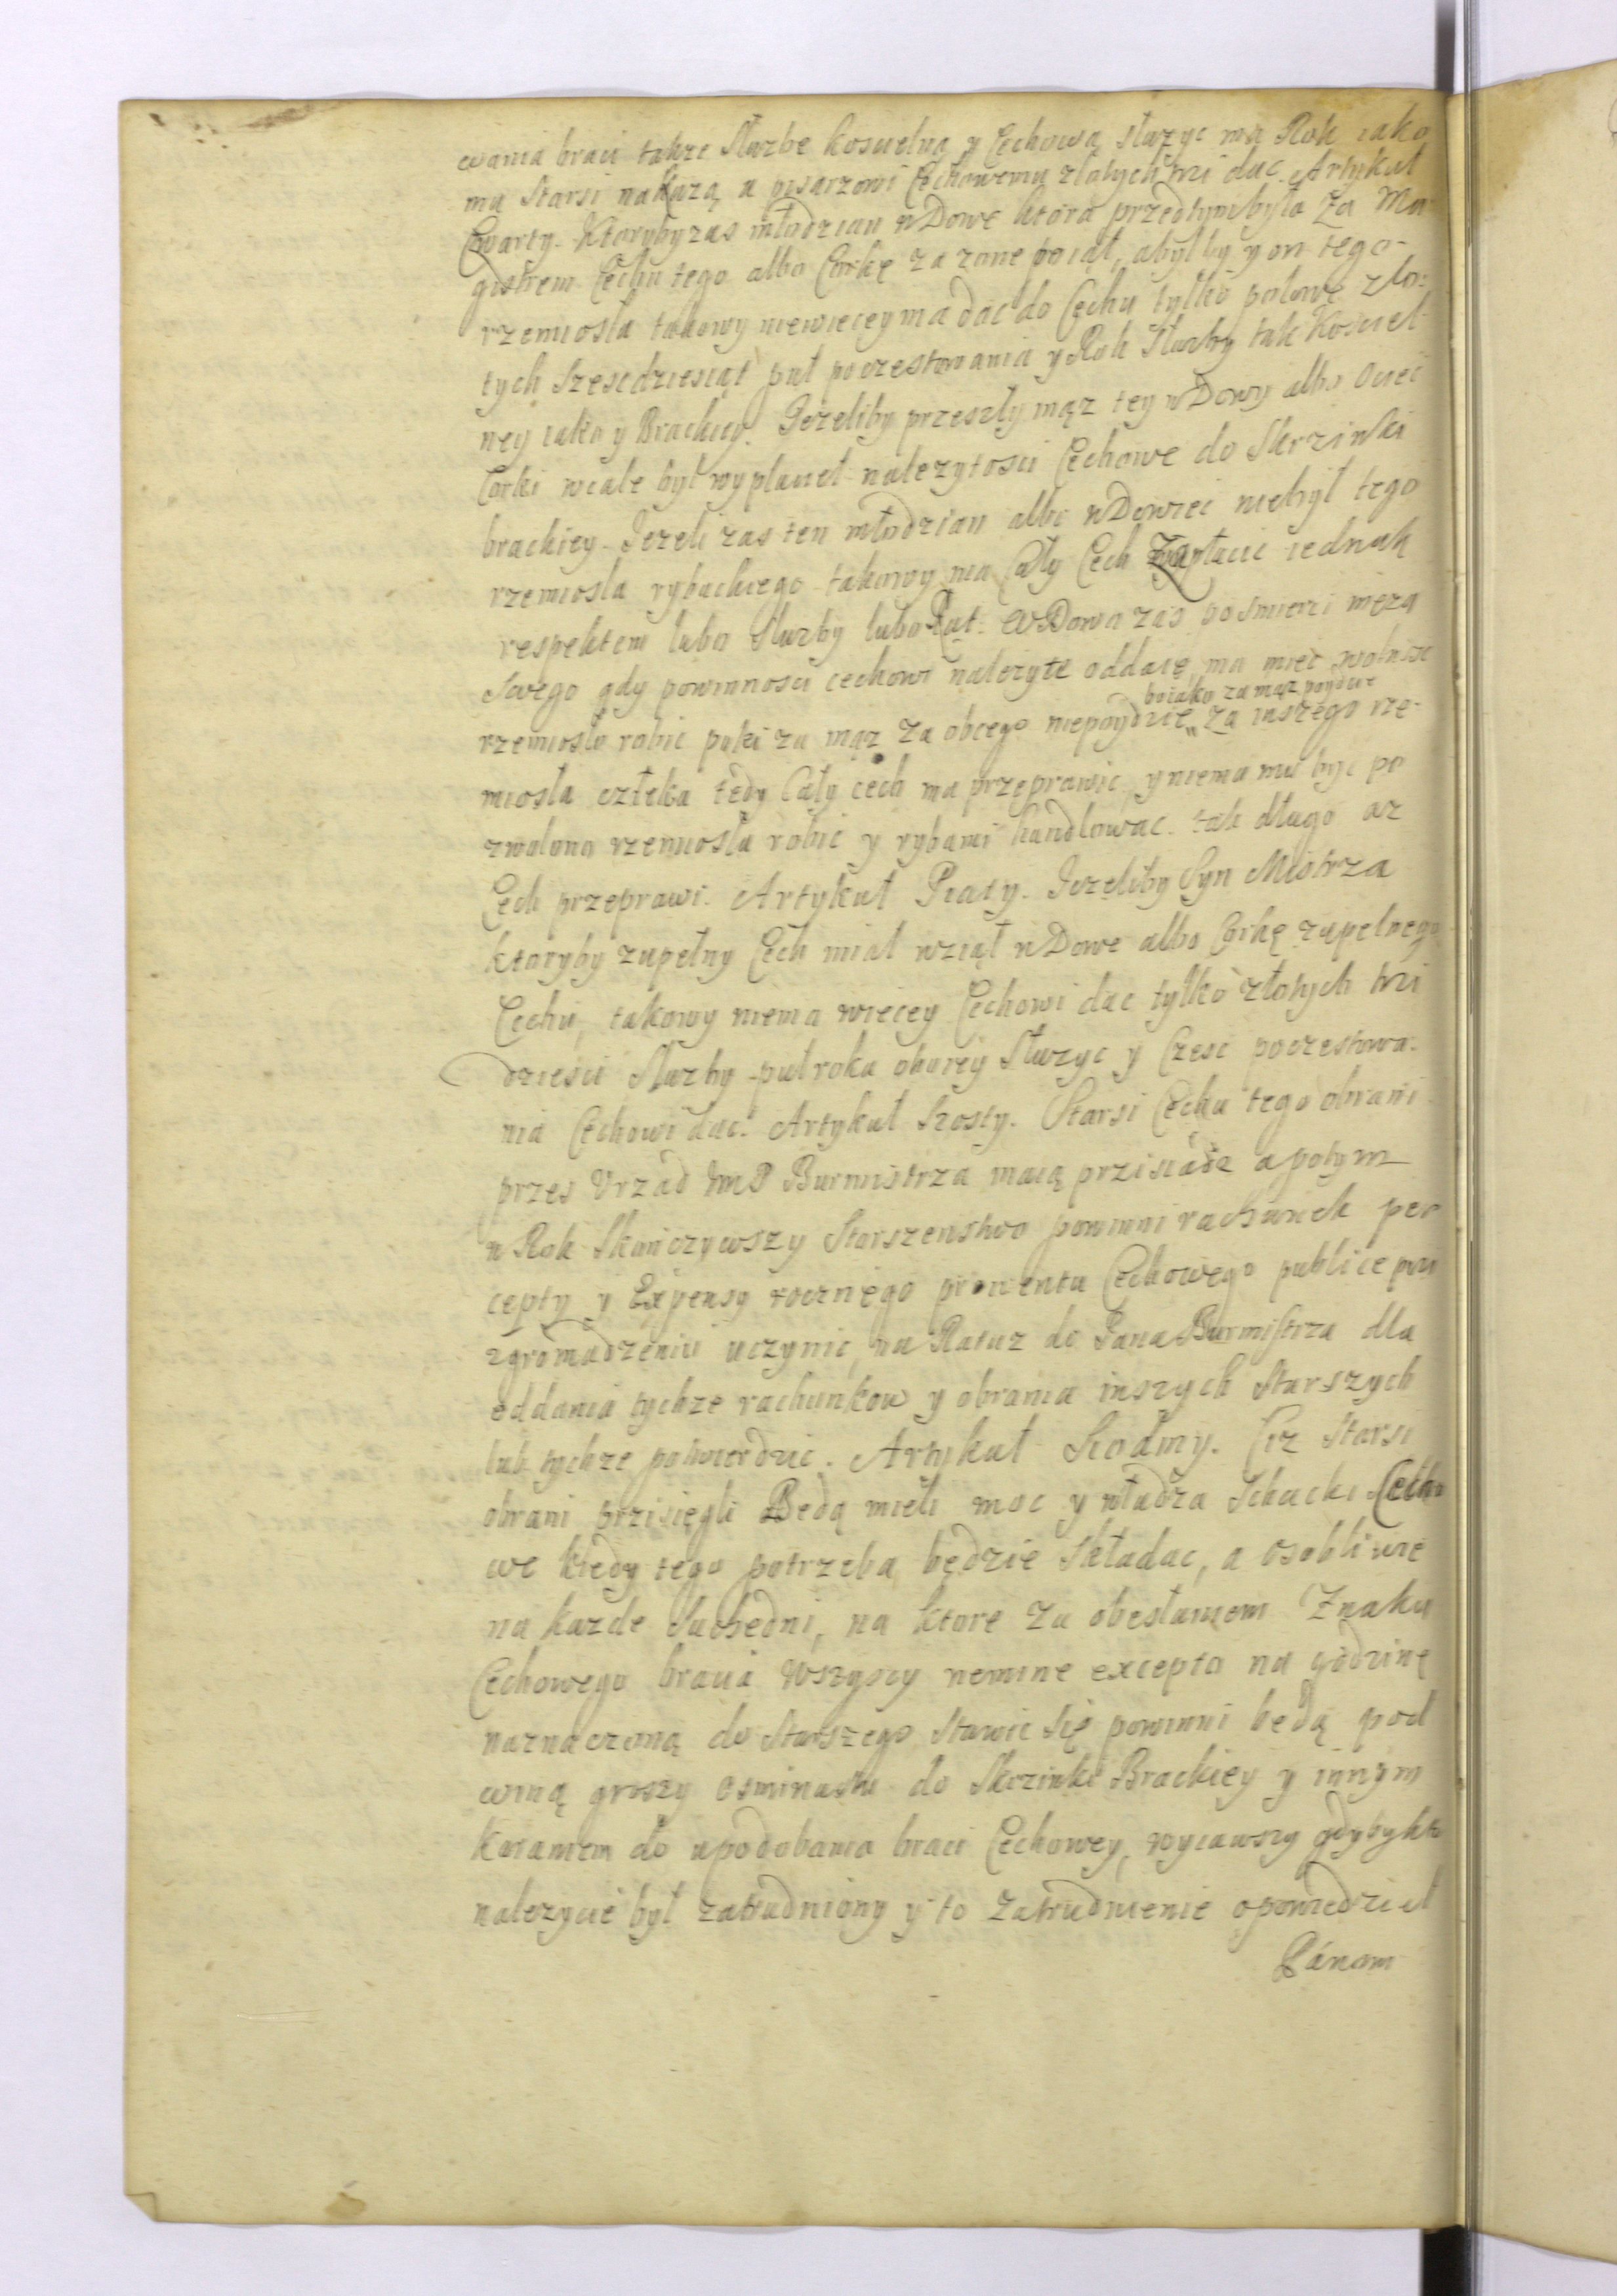 wania braci takze Służbe koscielną y Cechową służyc mą Rok iako
mu Starsi nakazą a pisarzowi Cechowemu złotych trzi dac. Artykuł
Czwarty. Ktorybyzas młodzian wDowę ktora przedtym była za Ma
gistrem Cechu tego albo Corkę za zone poiął, abyłby y on tego
rzemiosła takowy niewięcey ma dać do Cechu tylko połowę zło:
tych szescdziesiąt puł poczestowania y Rok Służby tak Koscieł
ney iako y Brackiey. Jezeliby przeszły mąz tey wDowy albo Ociec
Corki wcale był wypłacieł nalezytosci Cechowe do Skrzinki
brackiey. Jezeli zas ten młodzian albo wDowiec niebył tego
rzemiosla rybackiego takowy ma Cały Cech zapłacic iednak
respektem lubo Służby lubo Rat. WDowa zas po smierci męza
Swego gdy powinnosci cechowi nalezyte oddaię ma miec wolnosc
boiako zamąz poydzie
rzemiosło robic poki za mąz za obcego niepoydzie „ za inszego rze-
miosła człeka tedy Cały cech ma przeprawic, y niema mu byc po
zwolono rzemiosła robic y rybami handlowac tak długo az
Cech przeprawi. Artykuł Piąty. Jezeliby Syn Mistrza
ktoryby zupełny Cech miał wziął wDowe albo Corkę zupełnego
Cechu, takowy niema więcey Cechowi dac tylko złotych trzi
dziesci Służby puł roka oboiey Służyc y Częsc poczestowa-
nia Cechowi dac. Artykuł Szosty. Starsi Cechu tego obrani
przes Vrząd JmP Burmistrza maią przisiądz a potym
w Rok Skończywszy Starszenstwo powinni rachunek per
cepty y Expensy rocznego prowentu Cechowego publice przi
zgromadzeniu uczynic, na Ratuz do Pana Burmistrza dla
oddania tychze rachunkow y obrania inszych Starszych
lub tychze potwierdzic. Artykuł Siodmy. Ciz Starsi
obrani przisięgli Będą mieli moc y władza Schacki Cecho
we kiedy tego potrzeba będzie Składac, a osobliwie
na kazde Suchedni, na ktore za obesłaniem Znaku
Cechowego bracia wszyscy nemine excepto na godzinę
naznaczoną do Starszego Stawic Się powinni będą pod
winą groszy osminastu do Skrzinki Brackiey y innym
karaniem do upodobania braci Cechowey, wyiawszy gdybykto
nalezycie był zatrudniony y to zatrudnienie opowiedział
Pánom